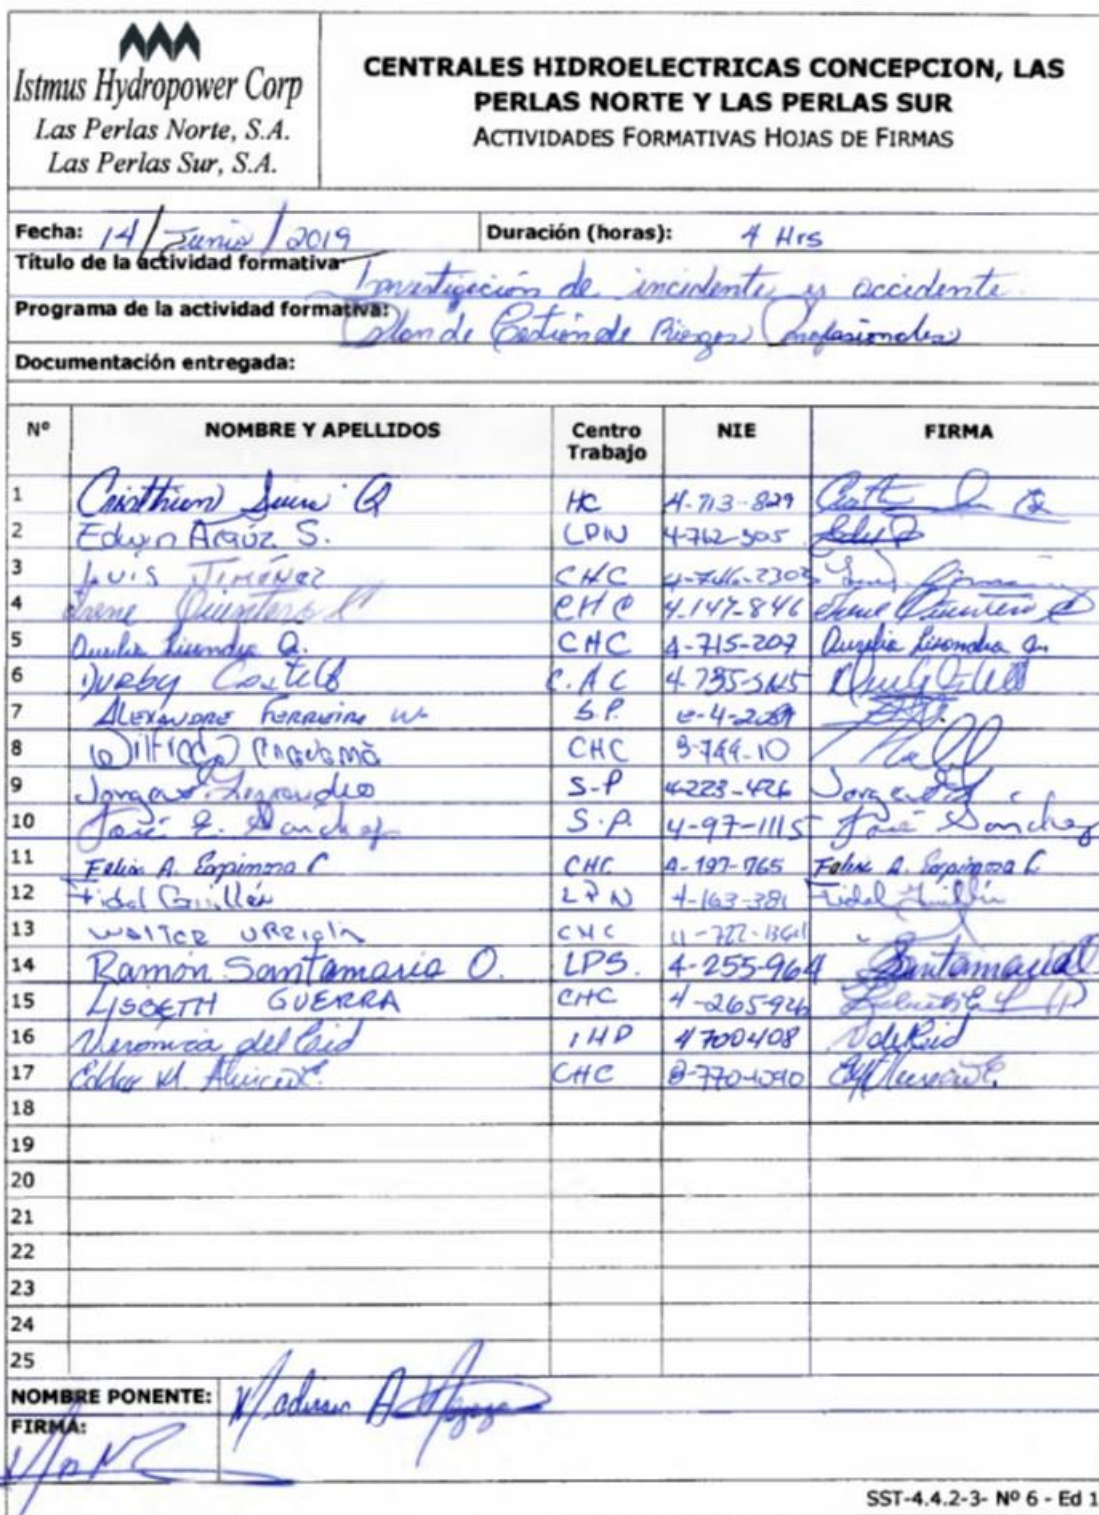 Istmus Hydropower Corp
Las Perlas Norte, S.A.
Las Perlas Sur, S.A.
CENTRALES HIDROELECTRICAS CONCEPCION, LAS
PERLAS NORTE Y LAS PERLAS SUR
ACTIVIDADES FORMATIVAS HOJAS DE FIRMAS
Fecha: 14/Junio/2019 Duración (horas): 4 Hrs
Título de la actividad formativa: Investigación de incidente y accidente
Programa de la actividad formativa: Plan de Gestión de Riesgos Profesionales
Documentación entregada:
Nº NOMBRE Y APELLIDOS Centro Trabajo NIE FIRMA
1 HC 4-713-829
2 Edwin Araúz S. LPN 4-762-305
3 Luis JIMÉNEZ CHC
4 Irene Quintero CHC 4-147-846 Irene Quintero
5 Aurelia Lisondro Q. CHC 4-715-207 Aurelia Lisondro Q.
6 Castillo C.A.C
7 ALEXANDRE FERREIRA S.P.
8 CHC
9 S-P 4-223-426
10 José E. Sanchez S.P. 4-97-1115 José Sanchez
11 Felix A. Espinoza C CHC 4-197-765 Felix A. Espinoza C
12 Fidel Guillén LPN 4-163-381 Fidel Guillén
13 CHC
14 Ramón Santamaria O. LPS. 4-255-964 Santamaria
15 LISBETH GUERRA CHC 4-265-926
16 Veronica del Cid IHP 4700408 V del Cid
17 CHC
18
19
20
21
22
23
24
25
NOMBRE PONENTE:
FIRMA:
SST-4.4.2-3- Nº 6 - Ed 1